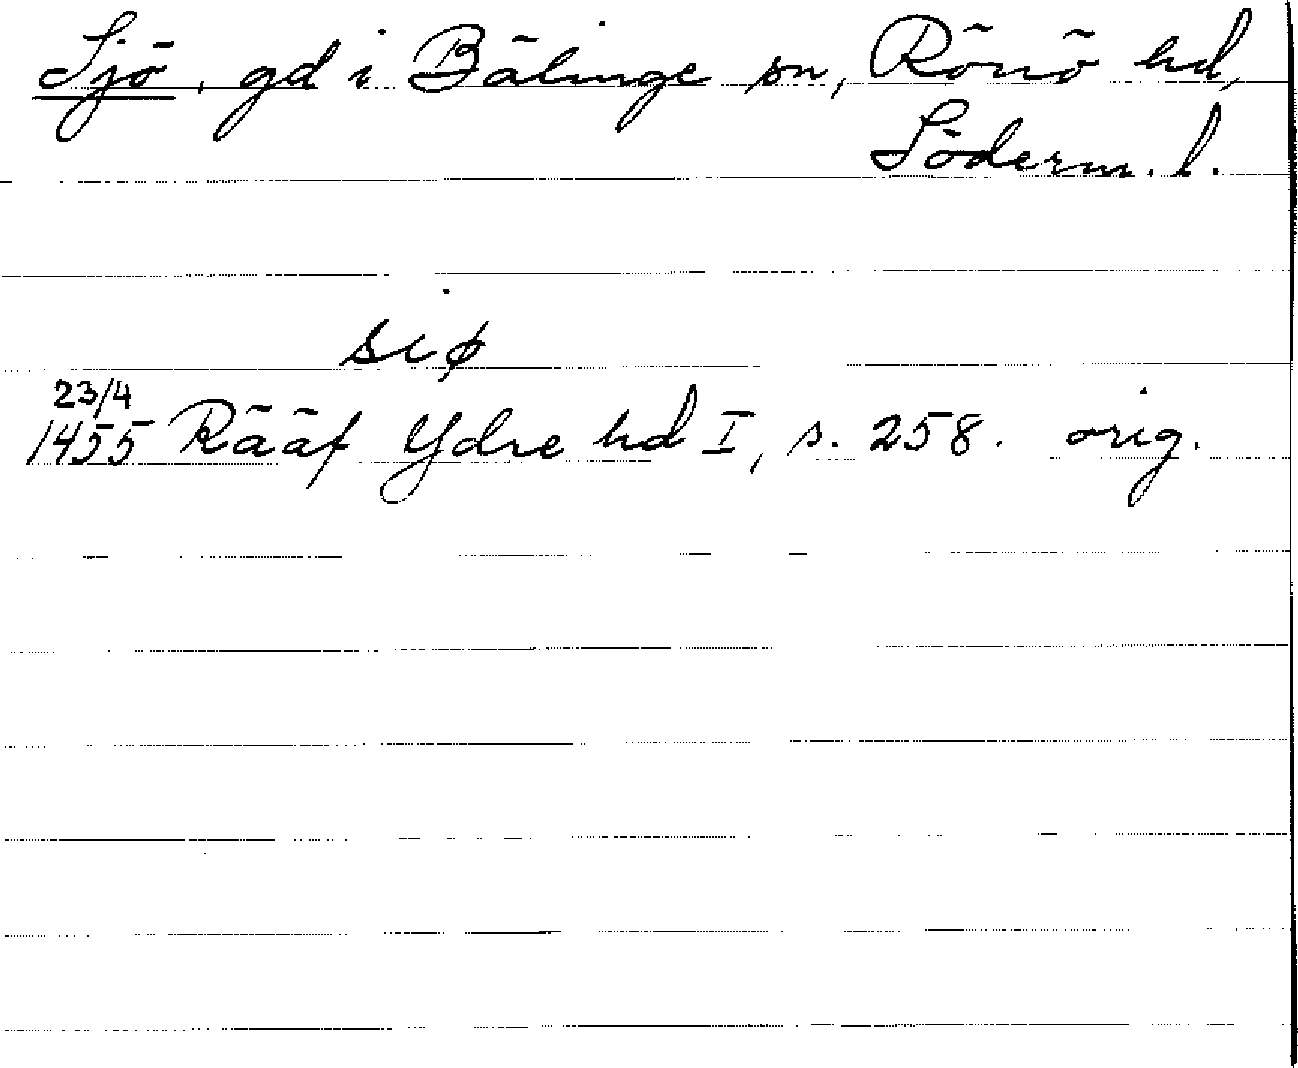 Sjö, gd i Bälinge sn, Rönö hd,
Söderm. l.
siø
23/4
1455 Rääf Ydre hd I, s. 258. orig.